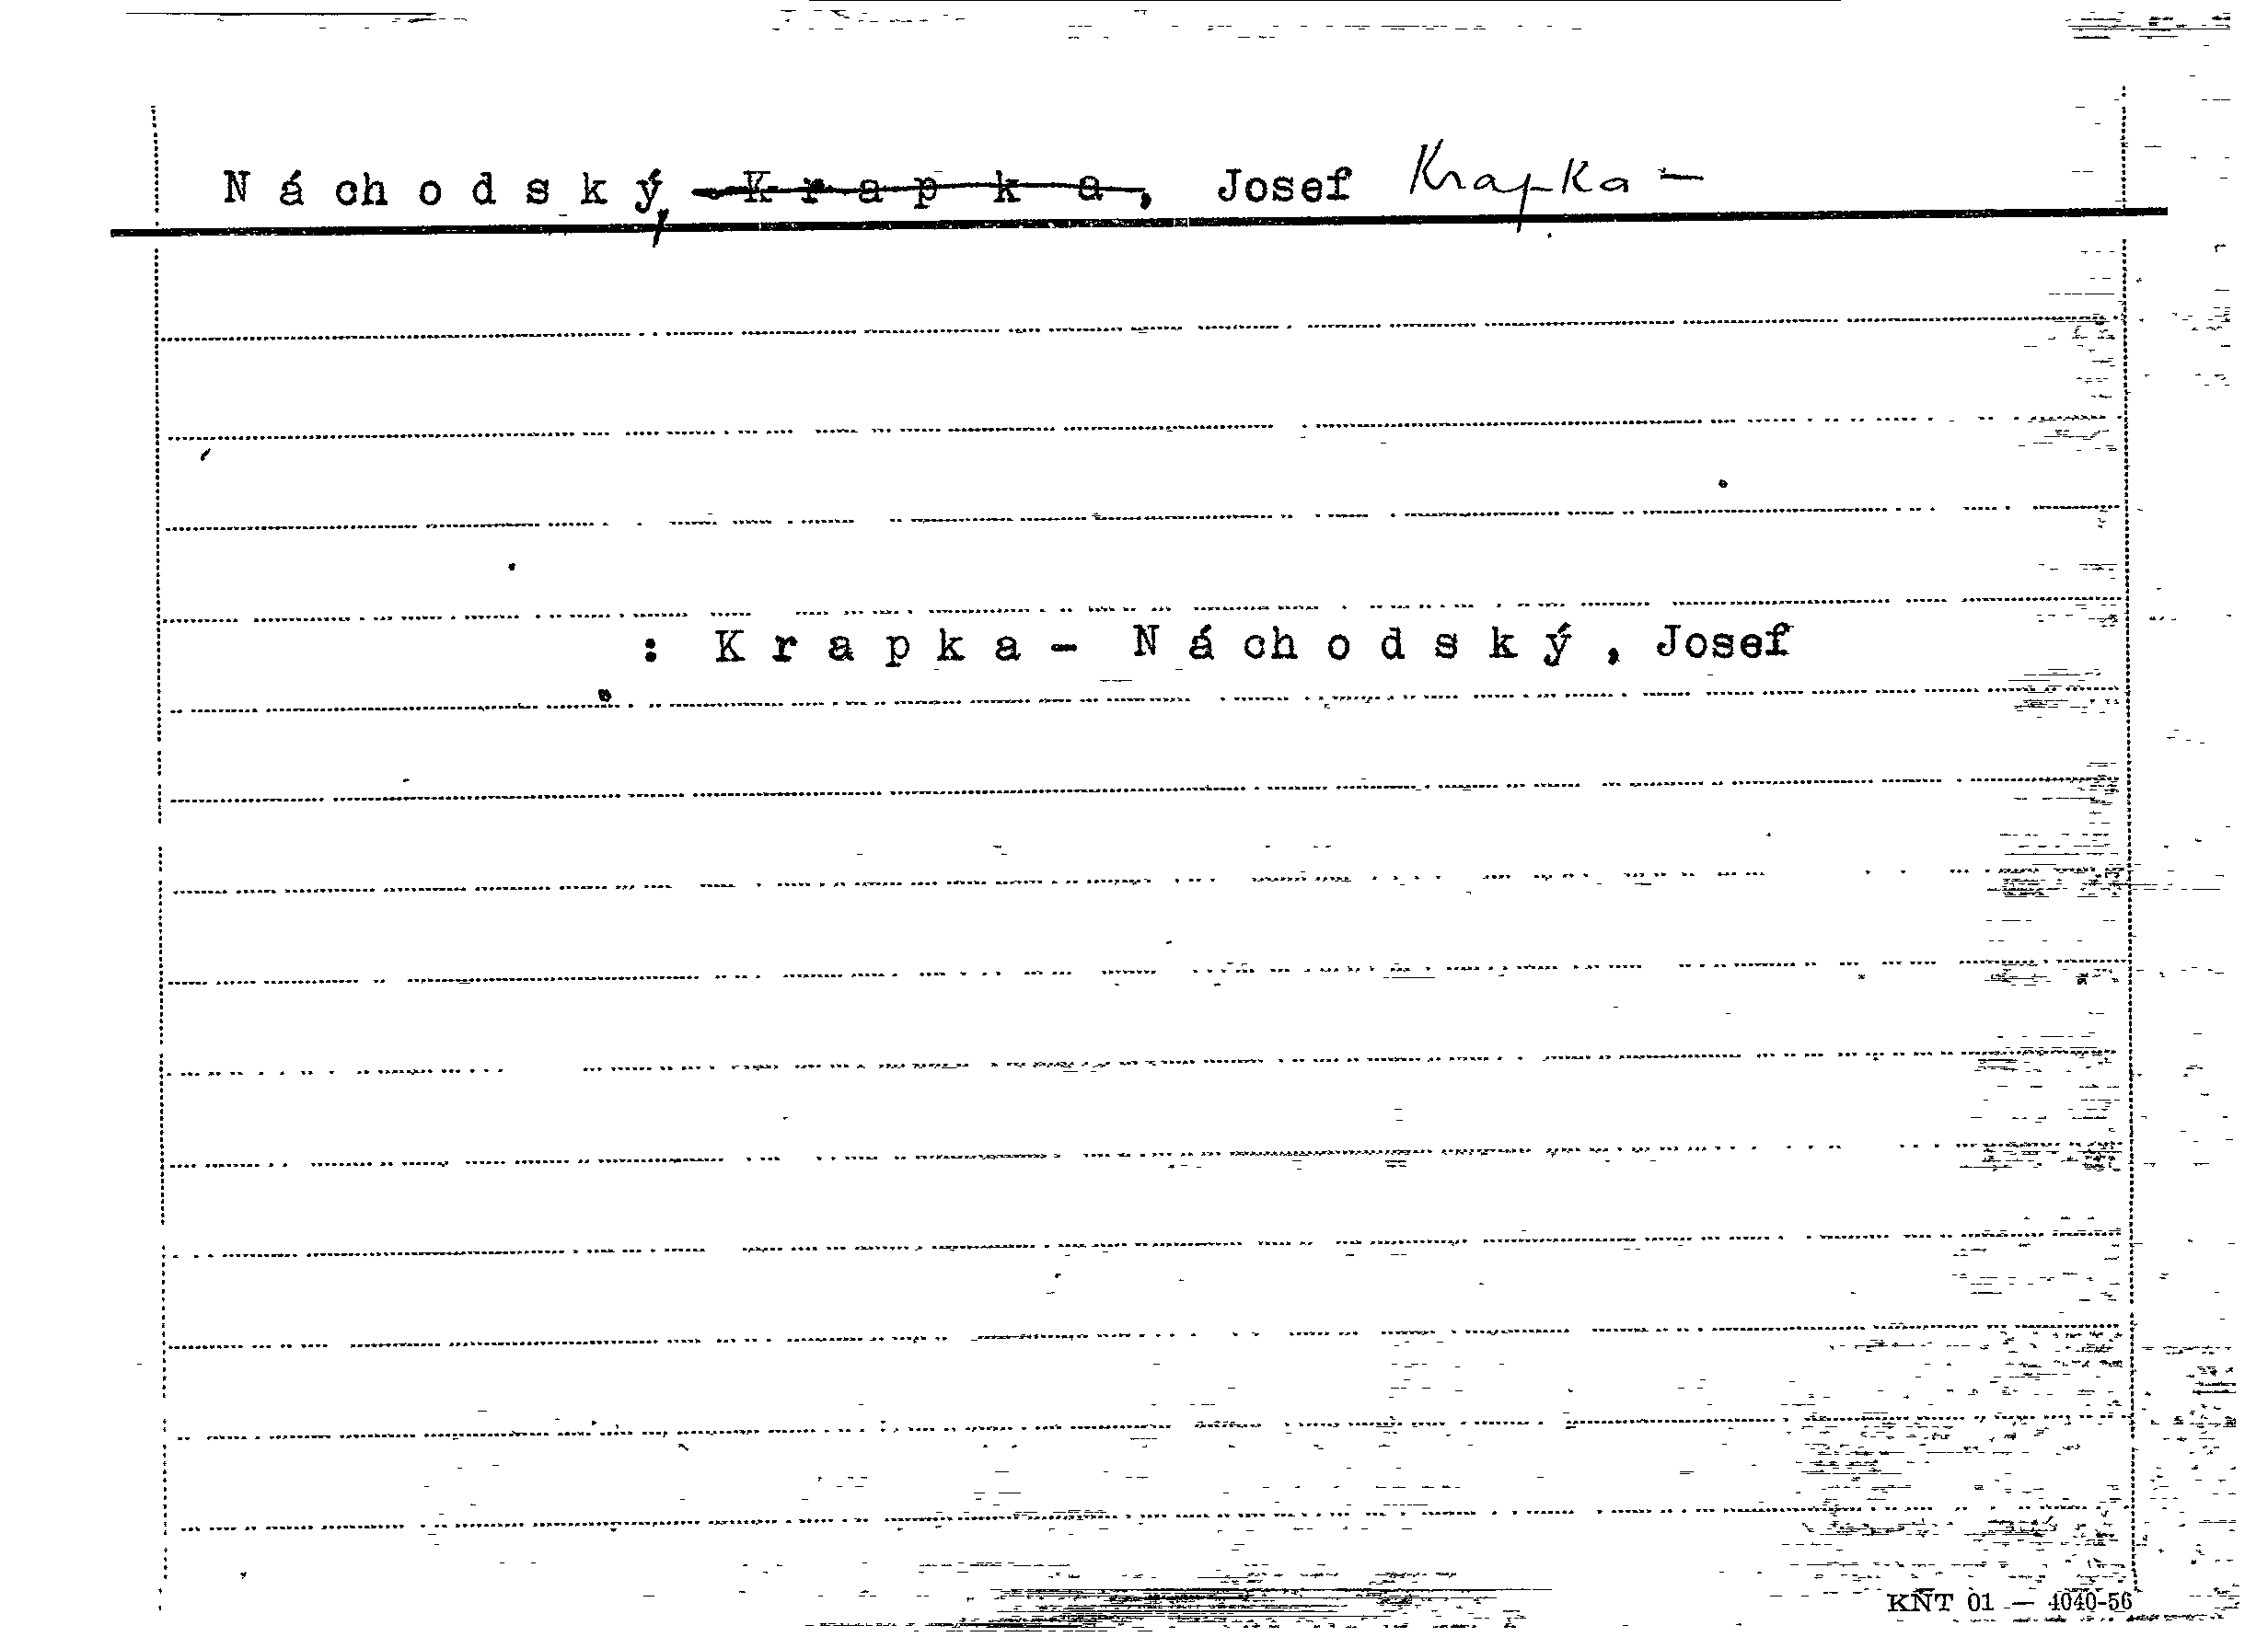 Náchodský, -Krapka, Josef Krapka -
: Krapka - Náchodský, Josef
KNT 01 — 4040-56